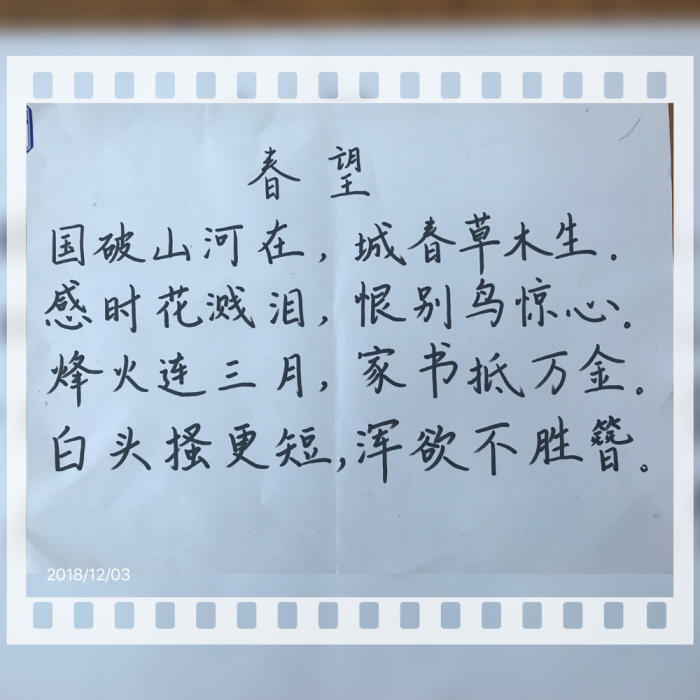 春望
国破山河在，城春草木生.
感时花溅泪，恨别鸟惊心。
烽火连三月，家书抵万金。
白头搔更短，浑欲不胜簪。
2018/12/03